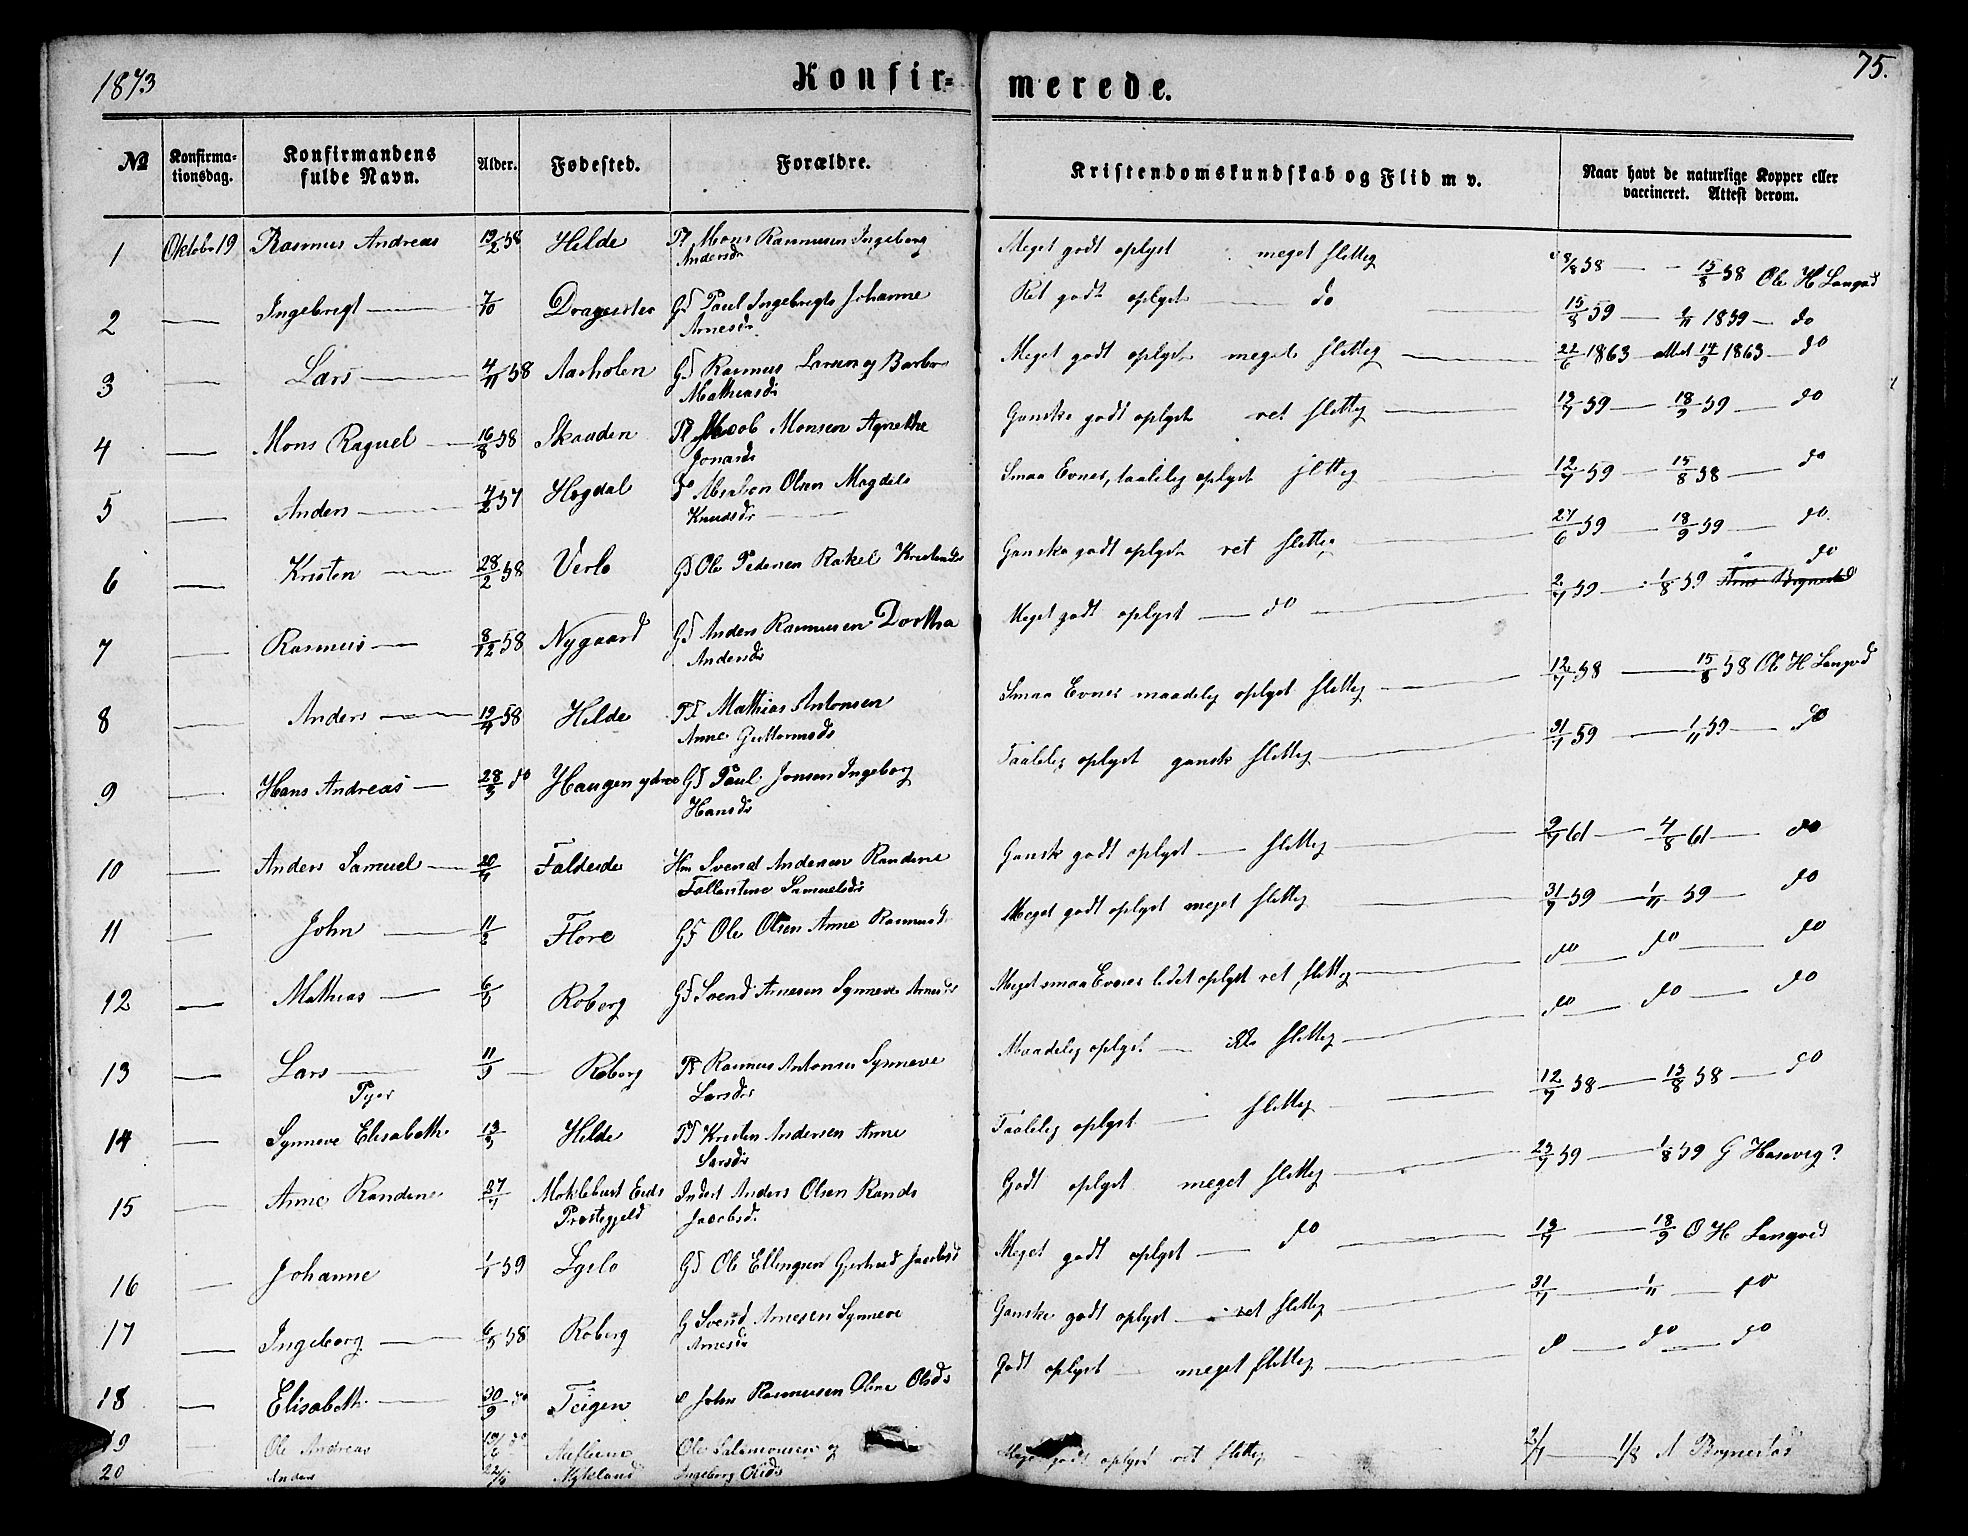 1873
Konfir-
merede.
75.
No
Konfirma-
tionsdag.
Konfirmandens
fulde Navn.
Alder.
Fødested.
Forældre.
Kristendomskundskab og Flid m v.
Naar havt de naturlige Kopper eller
vaccineret. Attest derom.
1 Oktobr 19 Rasmus Andreas 19/2 58 Hilde Pl Mons Rasmusen Ingeborg
Andersdr
Meget godt oplyst meget flittig 8/8 58 — 15/8 58 Ole H Langvd
2 — Ingebrigt — 7/10 Gd Paul Ingebrigts Johanne
Arnesdr
Ret godt oplyst — do 15/8 59 — 1/11 1859 — do
3 — Lars — 4/11 58 Aarholen Gd Rasmus Larsen og Barbro
Mathiasdr
Meget godt oplyst meget flittig — 22/6 1863 — attest 14/9 1863 — do
4 — Mons Raguel — 16/8 58 Skaaden Pl Jacob Monsen Agnethe
Jonasdr
Ganske godt oplyst ret flittig — 12/7 59 — 18/9 59 — do
5 — Anders — 4/2 57 Høgdal Absalon Olsen Magdele
Knudsdr
Smaa Evner, taalelig oplyst flittig — 12/7 59 — 15/8 58 — do
6 — Kristen — 28/2 58 Verlo Gd Ole Pedersen Rakel Kristensdr
Ganske godt oplyst ret flittig — 27/6 59 — 18/9 59 — do
7 — Rasmus — 8/12 58 Nygaard Gd Anders Rasmusen Dorthea
Andersdr
Meget godt oplyst — do — 2/7 59 — 1/8 59 do
8 — Anders — 19/4 58 Hilde Pl Mathias Antonsen
Anne Guttormsdr
Smaa Evner maadelig oplyst flittig — 12/7 58 — 15/8 58 Ole H Langvd
9 — Hans Andreas — 28/3 do Haugen ydree Gd Paul Jonsen Ingeborg
Hansdr
Taalelig oplyst gansk flittig — 31/7 59 — 1/11 59 — do
10 — Anders Samuel — 20/4 Faldeide Hm Svend Andersen Randine
Fallentine Samuelsdr
Gansk godt oplyst — flittig — 9/7 61 — 4/8 61 — do
11 — John — 11/2 Flore Gd Ole Olsen Anne Rasmusd
Meget godt oplyst meget flittig — 31/7 59 — 1/11 59 — do
12 — Mathias — 6/5 Roberg Gd Svend Arnesen Synneve Arnesdr
Meget smaa Evner lidet oplyst ret flittig — do — do — do
13 — Lars — 11/3 — Roberg Pl Rasmus Antonsen Synneve
Larsdr
Maadelig oplyst — ikke flittig — do — do — do
Piger
14 — Synneve Elisabeth 13/3 Hilde Pl Kristen Andersen Anne
Larsdr
Taalelig oplyst — flittig — 12/7 58 — 15/8 58 — do
15 — Anne Randine 27/4 Myklebust Eids
Præstegjeld
Inderst Anders Olsen Rands
Jacobsdr
Godt oplyst meget flittig — 25/7 59 — 1/8 59 G Hasevig?
16 — Johanne 1/1 59 Gd Ole Ellingsen Gjertrud Jacobsd
Meget godt oplyst — do — 13/7 — 18/9 O H Langvd
17 — Ingeborg — 6/5 58 Roberg G Svend Arnesen Synneve
Arnesdr
Ganske godt oplyst — ret flittig — 31/7 — 1/11 — do
18 — Elisabeth — 30/9 do Teigen John Rasmusen Oline Olsdr
Godt oplyst — meget flittig — do — do — do
19 — Ole Andreas Ole Salamonsen og
Meget godt oplyst ret flittig — 1/8 A Brynestad
20 Anders Mykland Ingeborg Olsdr